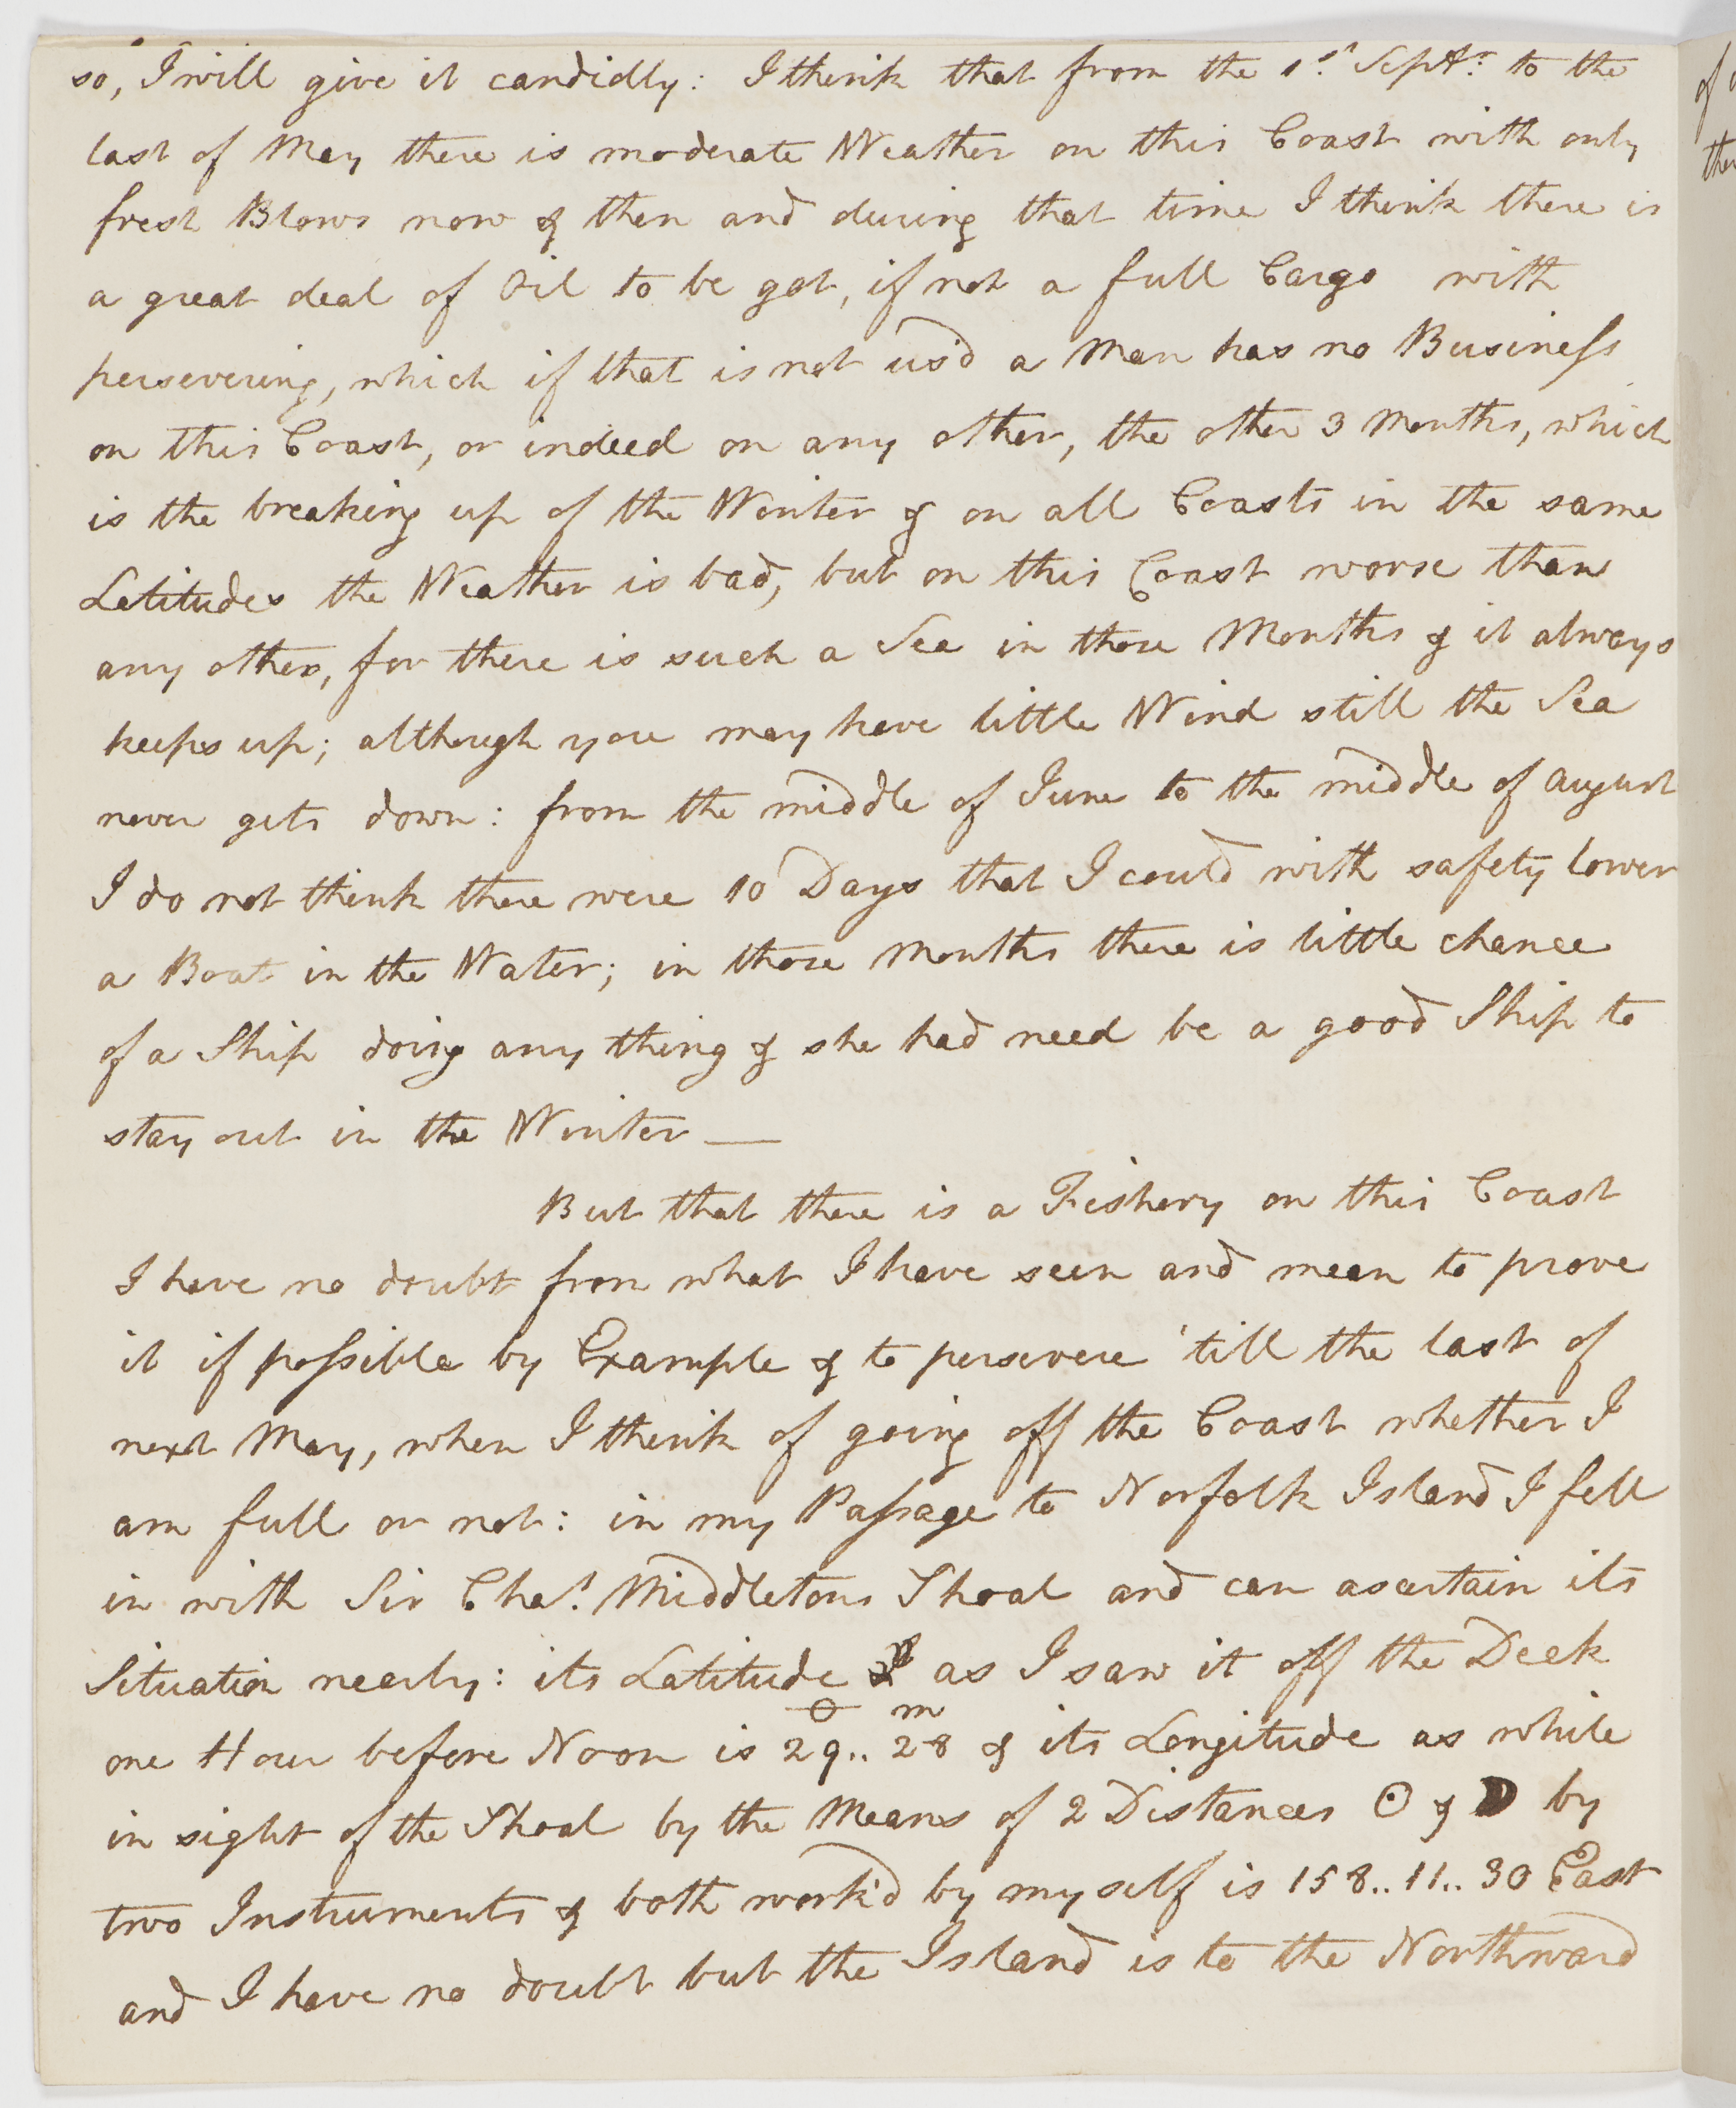 so, I will give it candidly: I think that from the 1st Septr. to the
last of May there is moderate Weather on this Coast with only
fresh Blows now & then and during that time I think there is
a great deal of Oil to be got, if not a full Cargo with
persevering, which if that is not us'd a Man has no Business
on this Coast, or indeed on any other, the other 3 Months, which
is the breaking up of the Winter & on all Coasts in the same
Latitudes the Weather is bad, but on this Coast worse than
any other, for there is such a Sea in those Months & it always
keeps up; although you may have little Wind still the Sea
never gets down: from the middle of June to the middle of August
I do not think there were 10 Days that I could with safety lower
a Boat in the Water; in those Months there is little chance
of a Ship doing any thing & she had need be a good Ship to
stay out in the Winter —
But that there is a Fishery on this Coast
I have no doubt from what I have seen and mean to prove
it if possible by Example & to persevere 'till the last of
next May, when I think of going off the Coast whether I
am full or not: in my Passage to Norfolk Island I fell
in with Sir Chas. Middletons Shoal and can ascertain its
Situation nearly: its Latitude as I saw it off the Deck
one Hour before Noon is 29°.. 28m & its Longitude as while
in sight of the Shoal by the Means of 2 Distances ☉ & ☽ by
two Instruments & both work'd by myself is 158.. 11.. 30 East
and I have no doubt but the Island is to the Northward
of